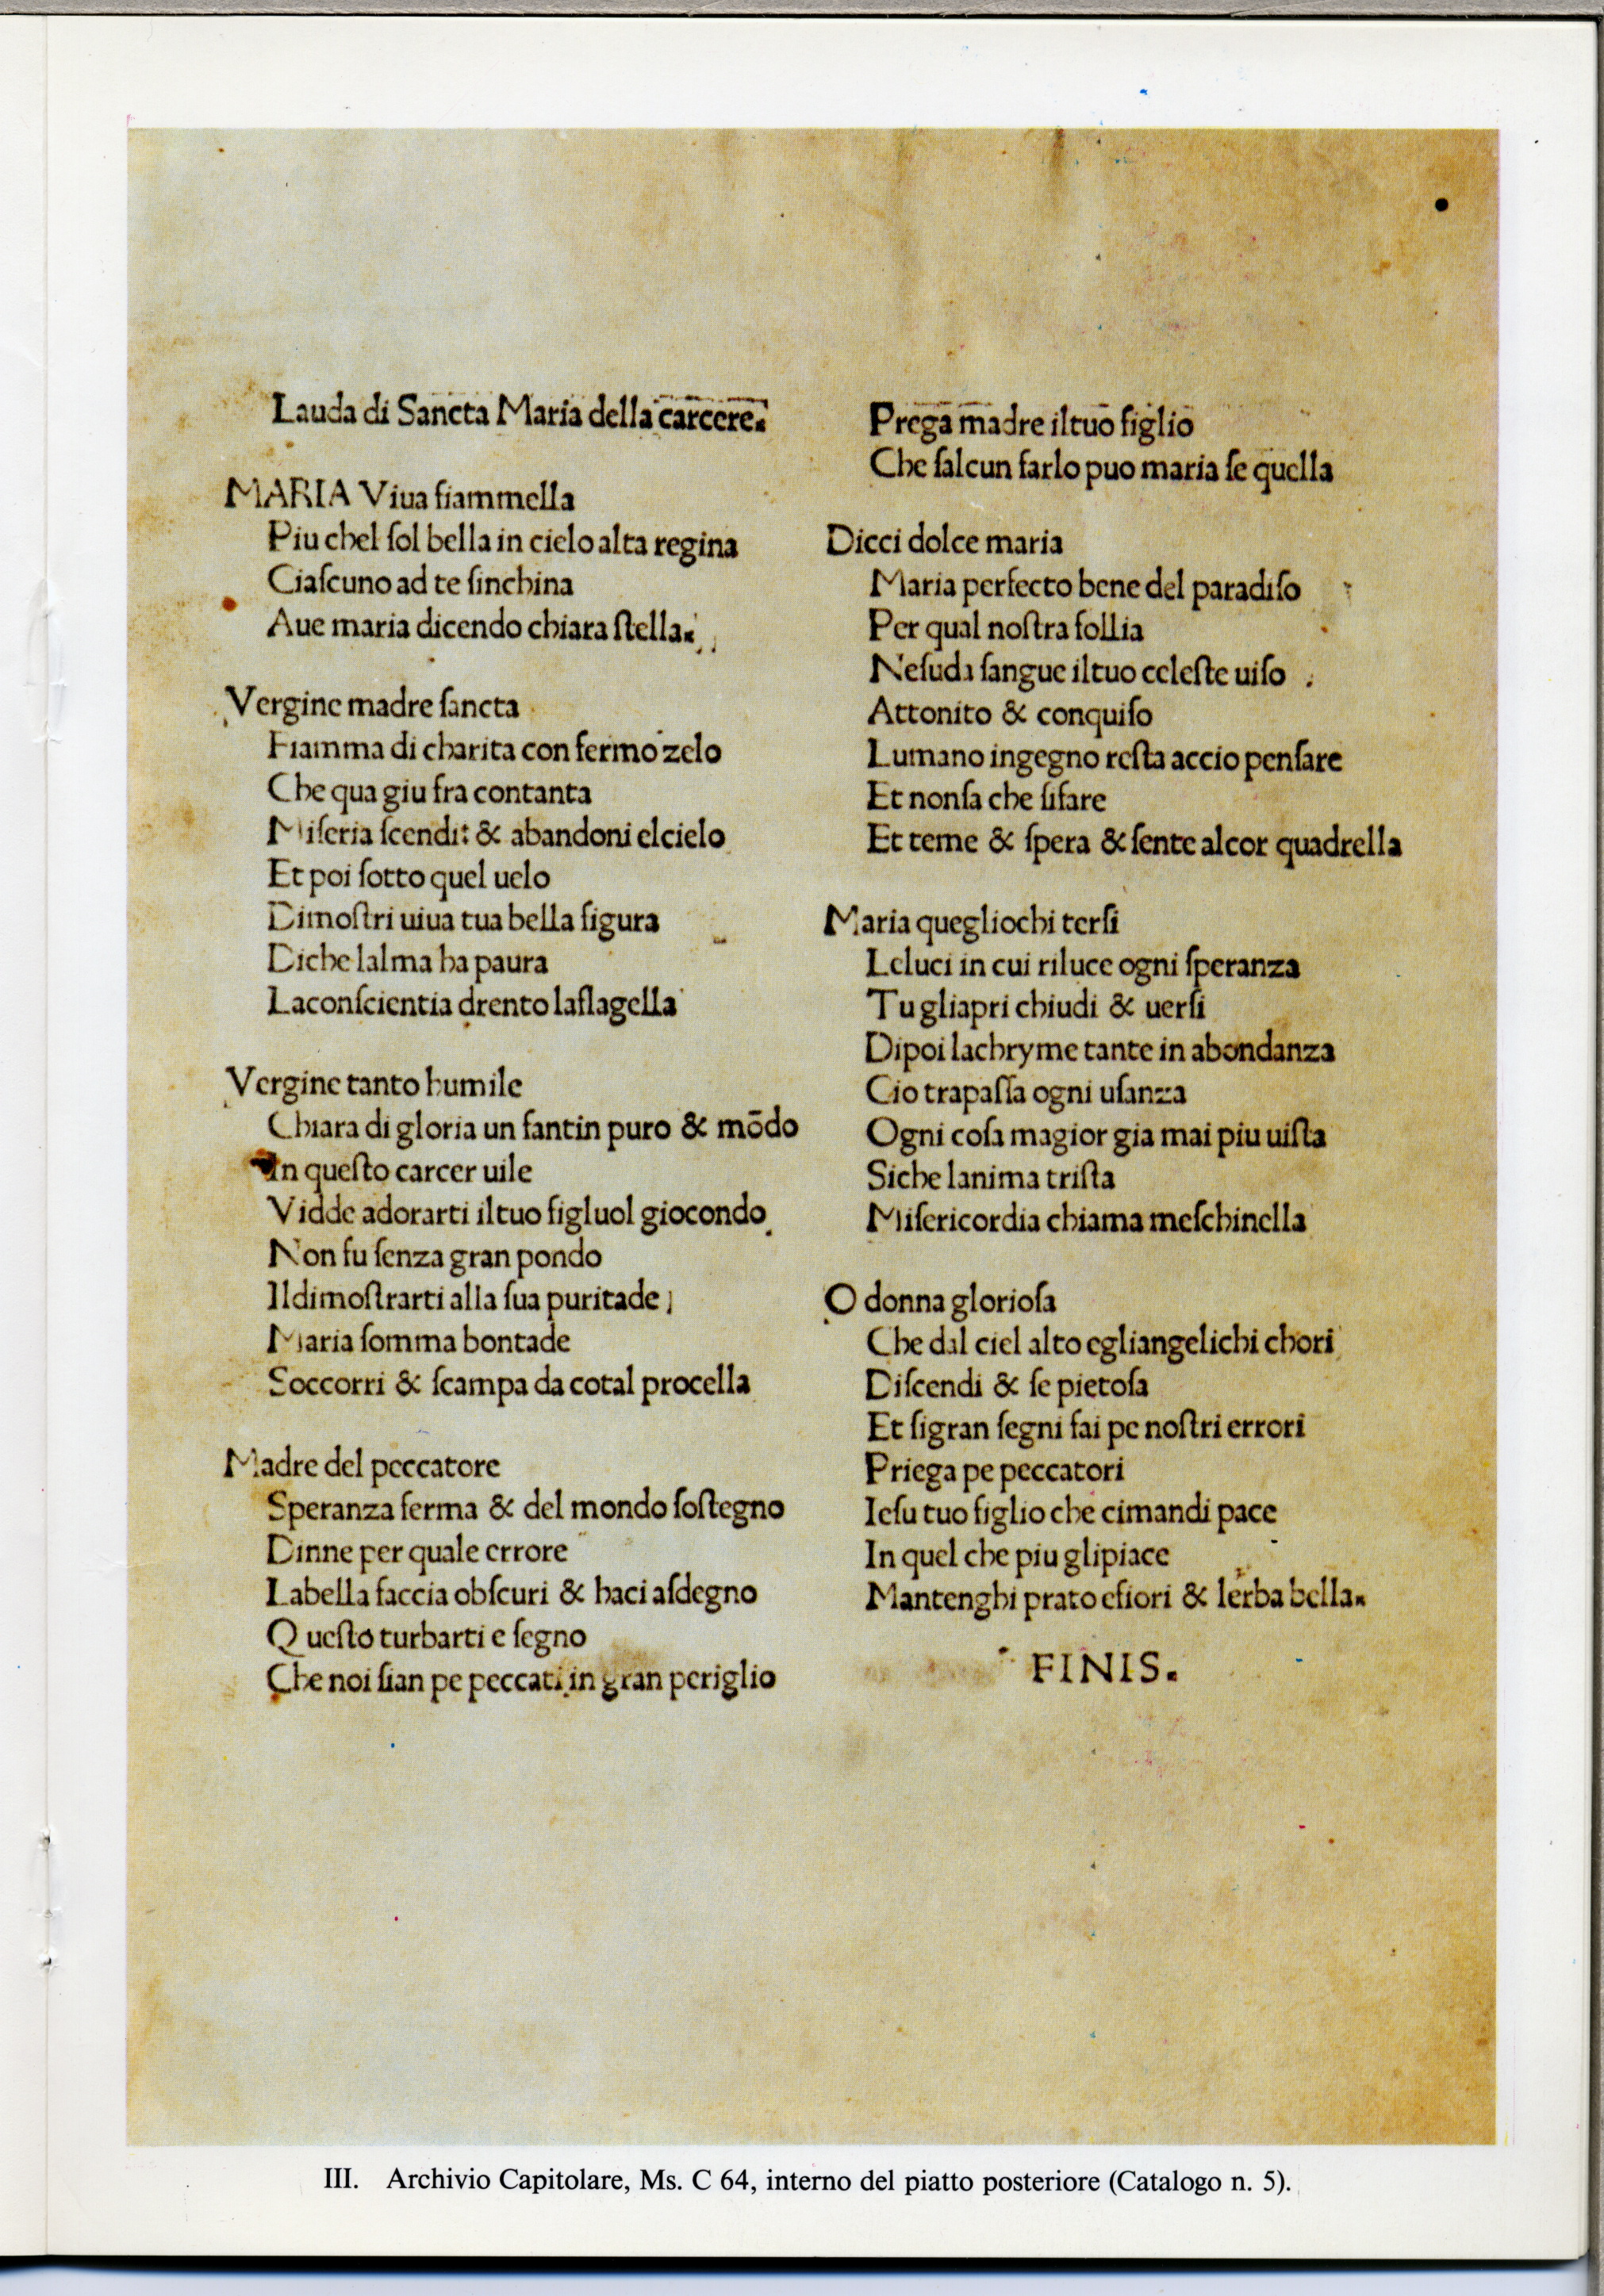 Lauda di Sancta Maria della carcere.
MARIA Viua fiammella
Piu chel ſol bella in cielo alta regina
Ciaſcuno ad te ſinchina
Aue maria dicendo chiara ſtella.
Vergine madre ſancta
Fiamma di charita con fermo zelo
Che qua giu fra contanta
Miſeria ſcendi: & abandoni elcielo
Et poi ſotto quel uelo
Dimoſtri uiua tua bella figura
Diche lalma ha paura
Laconſcientia drento laflagella
Vergine tanto humile
Chiara di gloria un fantin puro & mōdo
In queſto carcer uile
Vidde adorarti iltuo figluol giocondo
Non fu ſenza gran pondo
Ildimoſtrarti alla ſua puritade
Maria ſomma bontade
Soccorri & ſcampa da cotal procella
Madre del peccatore
Speranza ferma & del mondo ſoſtegno
Dinne per quale errore
Labella faccia obſcuri & haci aſdegno
Queſto turbarti e ſegno
Che noi ſian pe peccati in gran periglio
Prega madre iltuo figlio
Che ſalcun farlo puo maria ſe quella
Dicci dolce maria
Maria perfecto bene del paradiſo
Per qual noſtra follia
Neſuda ſangue iltuo celeſte uiſo
Attonito & conquiſo
Lumano ingegno reſta accio penſare
Et nonſa che ſifare
Et teme & ſpera & ſente alcor quadrella
Maria quegliochi terſi
Leluci in cui riluce ogni ſperanza
Tu gliapri chiudi & uerſi
Dipoi lachryme tante in abondanza
Cio trapaſſa ogni uſanza
Ogni coſa magior gia mai piu uiſta
Siche lanima triſta
Miſericordia chiama meſchinella
O donna glorioſa
Che dal ciel alto egliangelichi chori
Diſcendi & ſe pietoſa
Et ſigran ſegni fai pe noſtri errori
Priega pe peccatori
Ieſu tuo figlio che cimandi pace
In quel che piu glipiace
Mantenghi prato efiori & lerba bella.
FINIS.
III. Archivio Capitolare, Ms. C 64, interno del piatto posteriore (Catalogo n. 5).